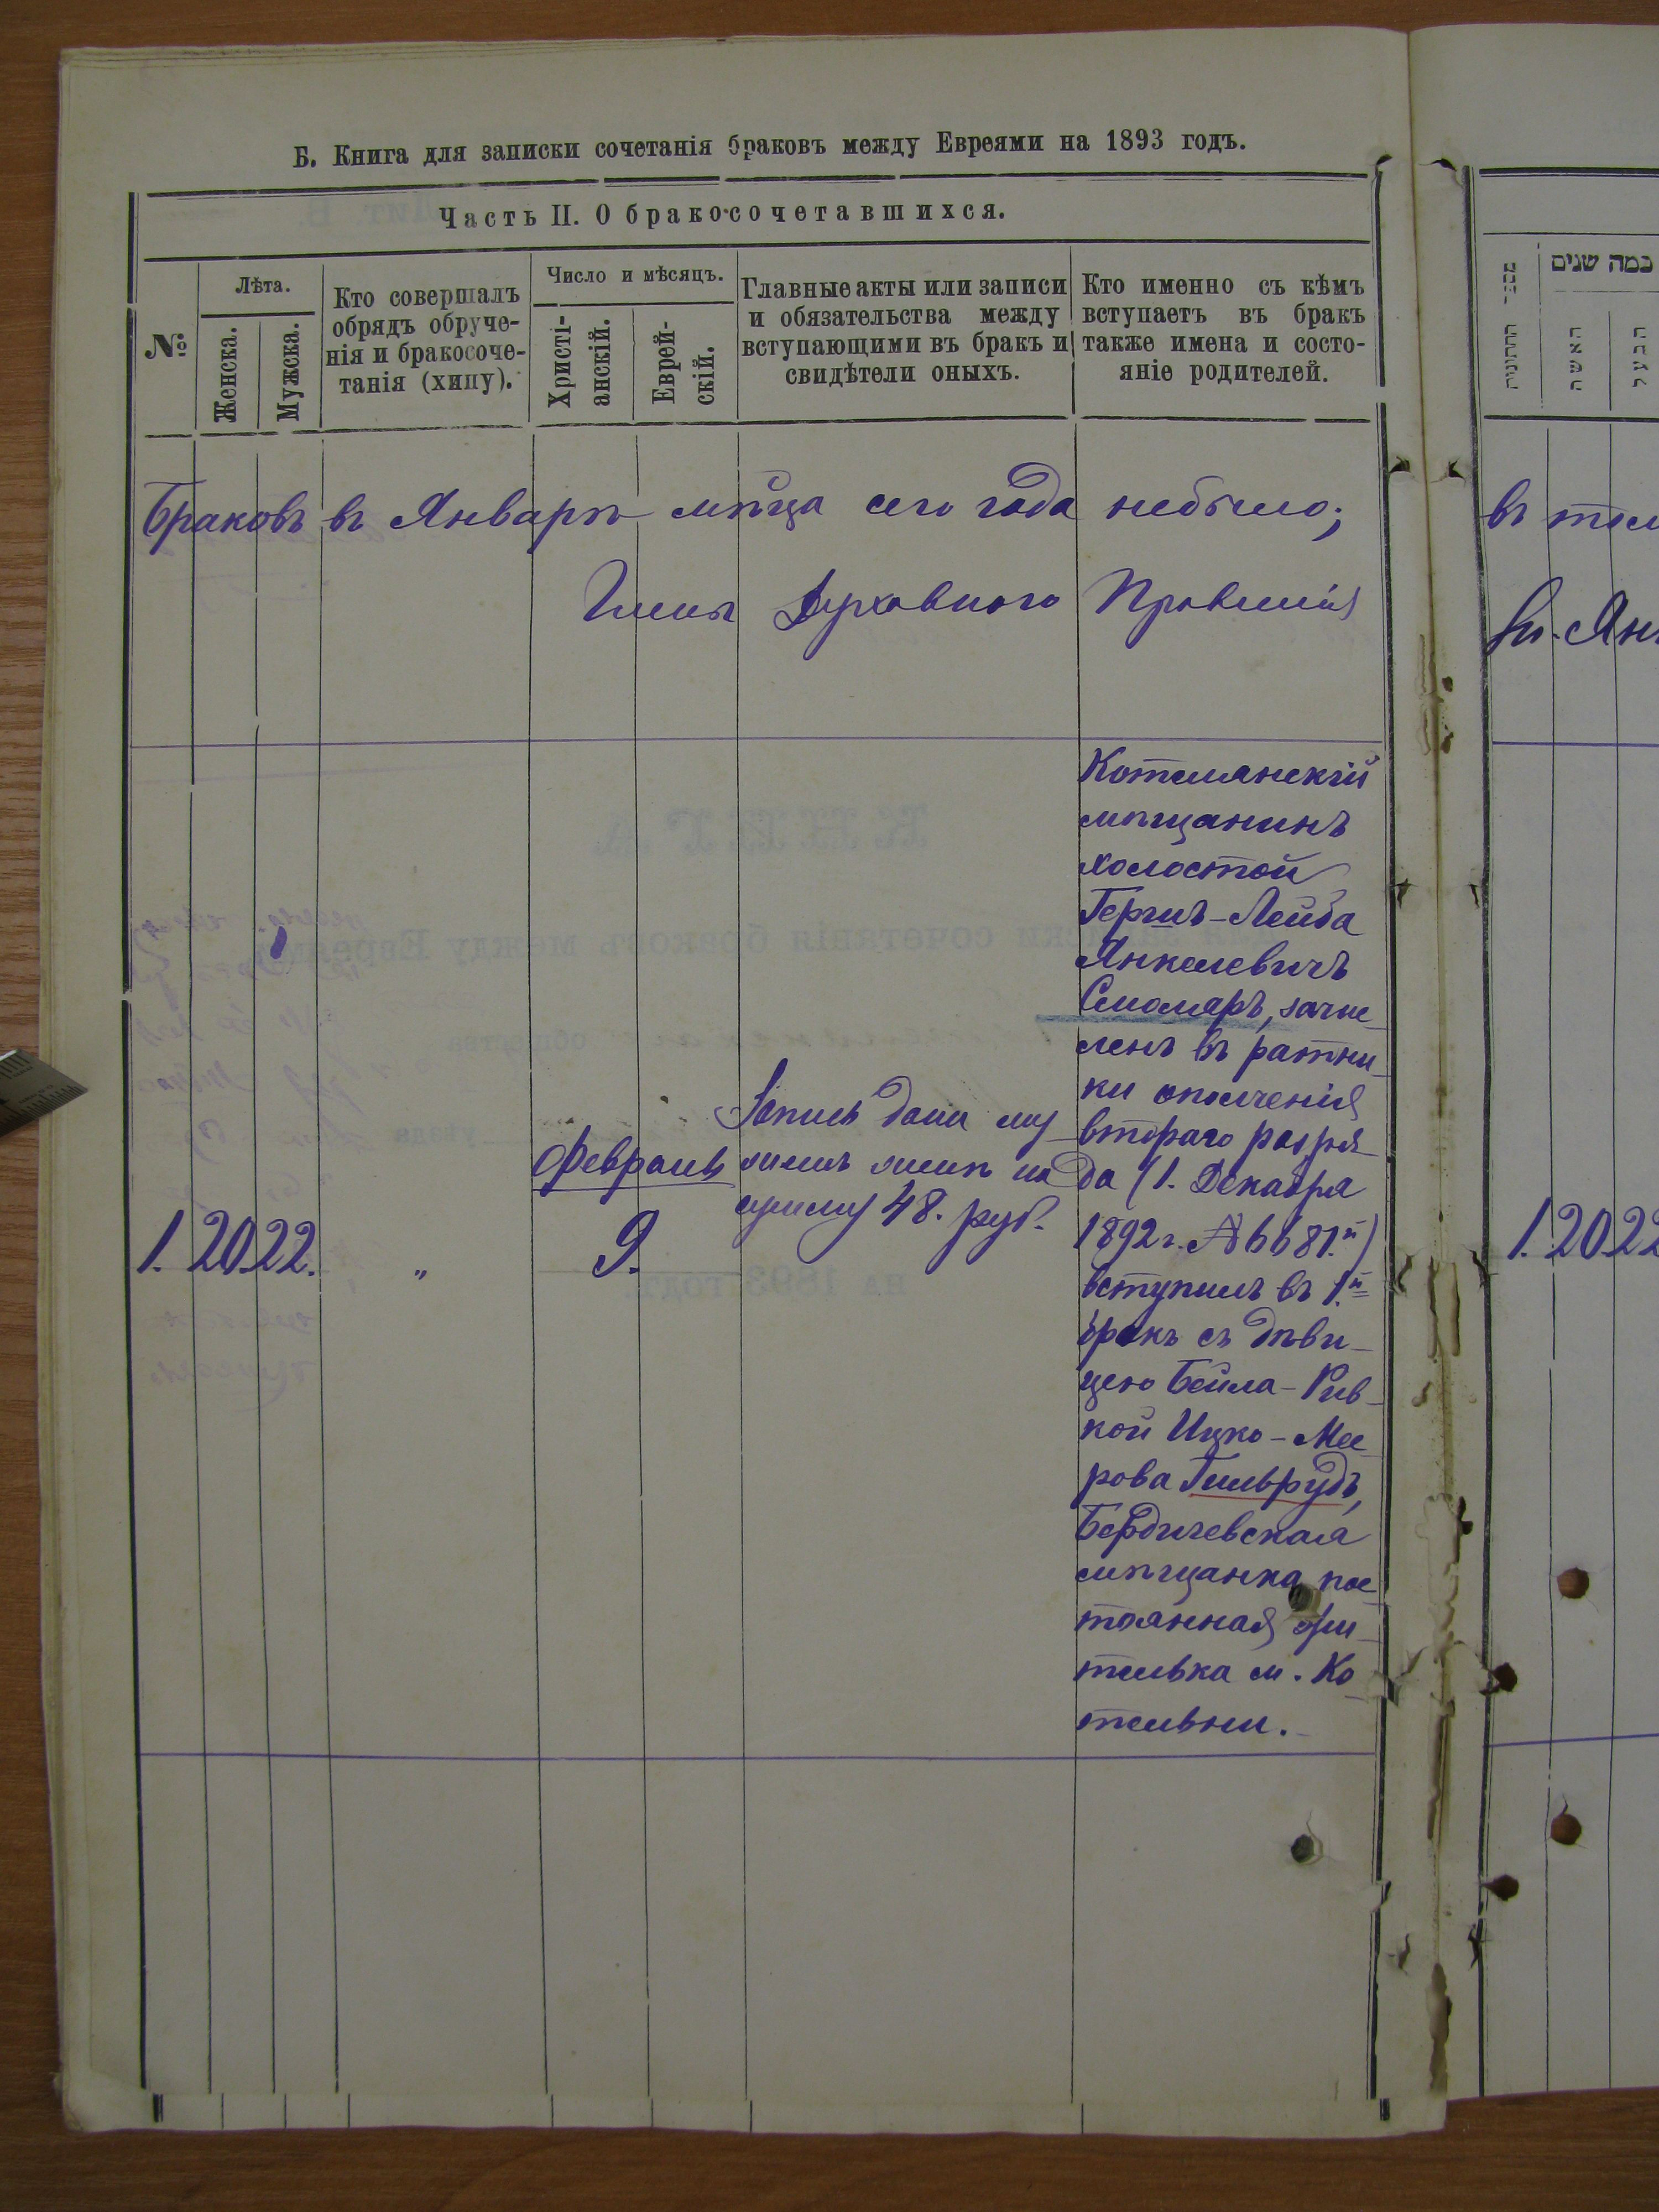 Б. Книга для записки сочетанія браковъ между Евреями на 1893 годъ.
Часть II. О бракосочетавшихся.
№
Лѣта.
Женска.
Мужска.
Кто совершалъ
обрядъ обруче-
нія и бракосоче-
танія (хипу).
Число и мѣсяцъ.
Христі-
анскій.
Еврей-
скій.
Главные акты или записи
и обязательства между
вступающими въ бракъ и
свидѣтели оныхъ.
Кто именно съ кѣмъ
вступаетъ въ бракъ
также имена и состо-
яніе родителей.
Браковъ въ Январѣ мѣца сего года небыло;
Члены Духовнаго Правленія
1. 20. 22.
"
Февраль
9.
Запись дана му
жемъ женѣ на
сумму 48. руб.
Котелянскій
мѣщанинъ
холостой
Гершъ-Лейба
Янкелевичъ
Смоляръ, зачис
ленъ въ ратни
ки ополченія
втораго разря
да (1. Декабря
1892 г. № 6681.й)
вступилъ въ 1.й
бракъ съ дѣви
цею Бейла-Рив
кой Ицко-Мее
рова Гильрудъ,
Бердичевская
мѣщанка пос
тоянная жи
телька м. Ко
тельни.
מספר החתונות
כמה שנים
האשה
הבעל
въ
1. 20. 22